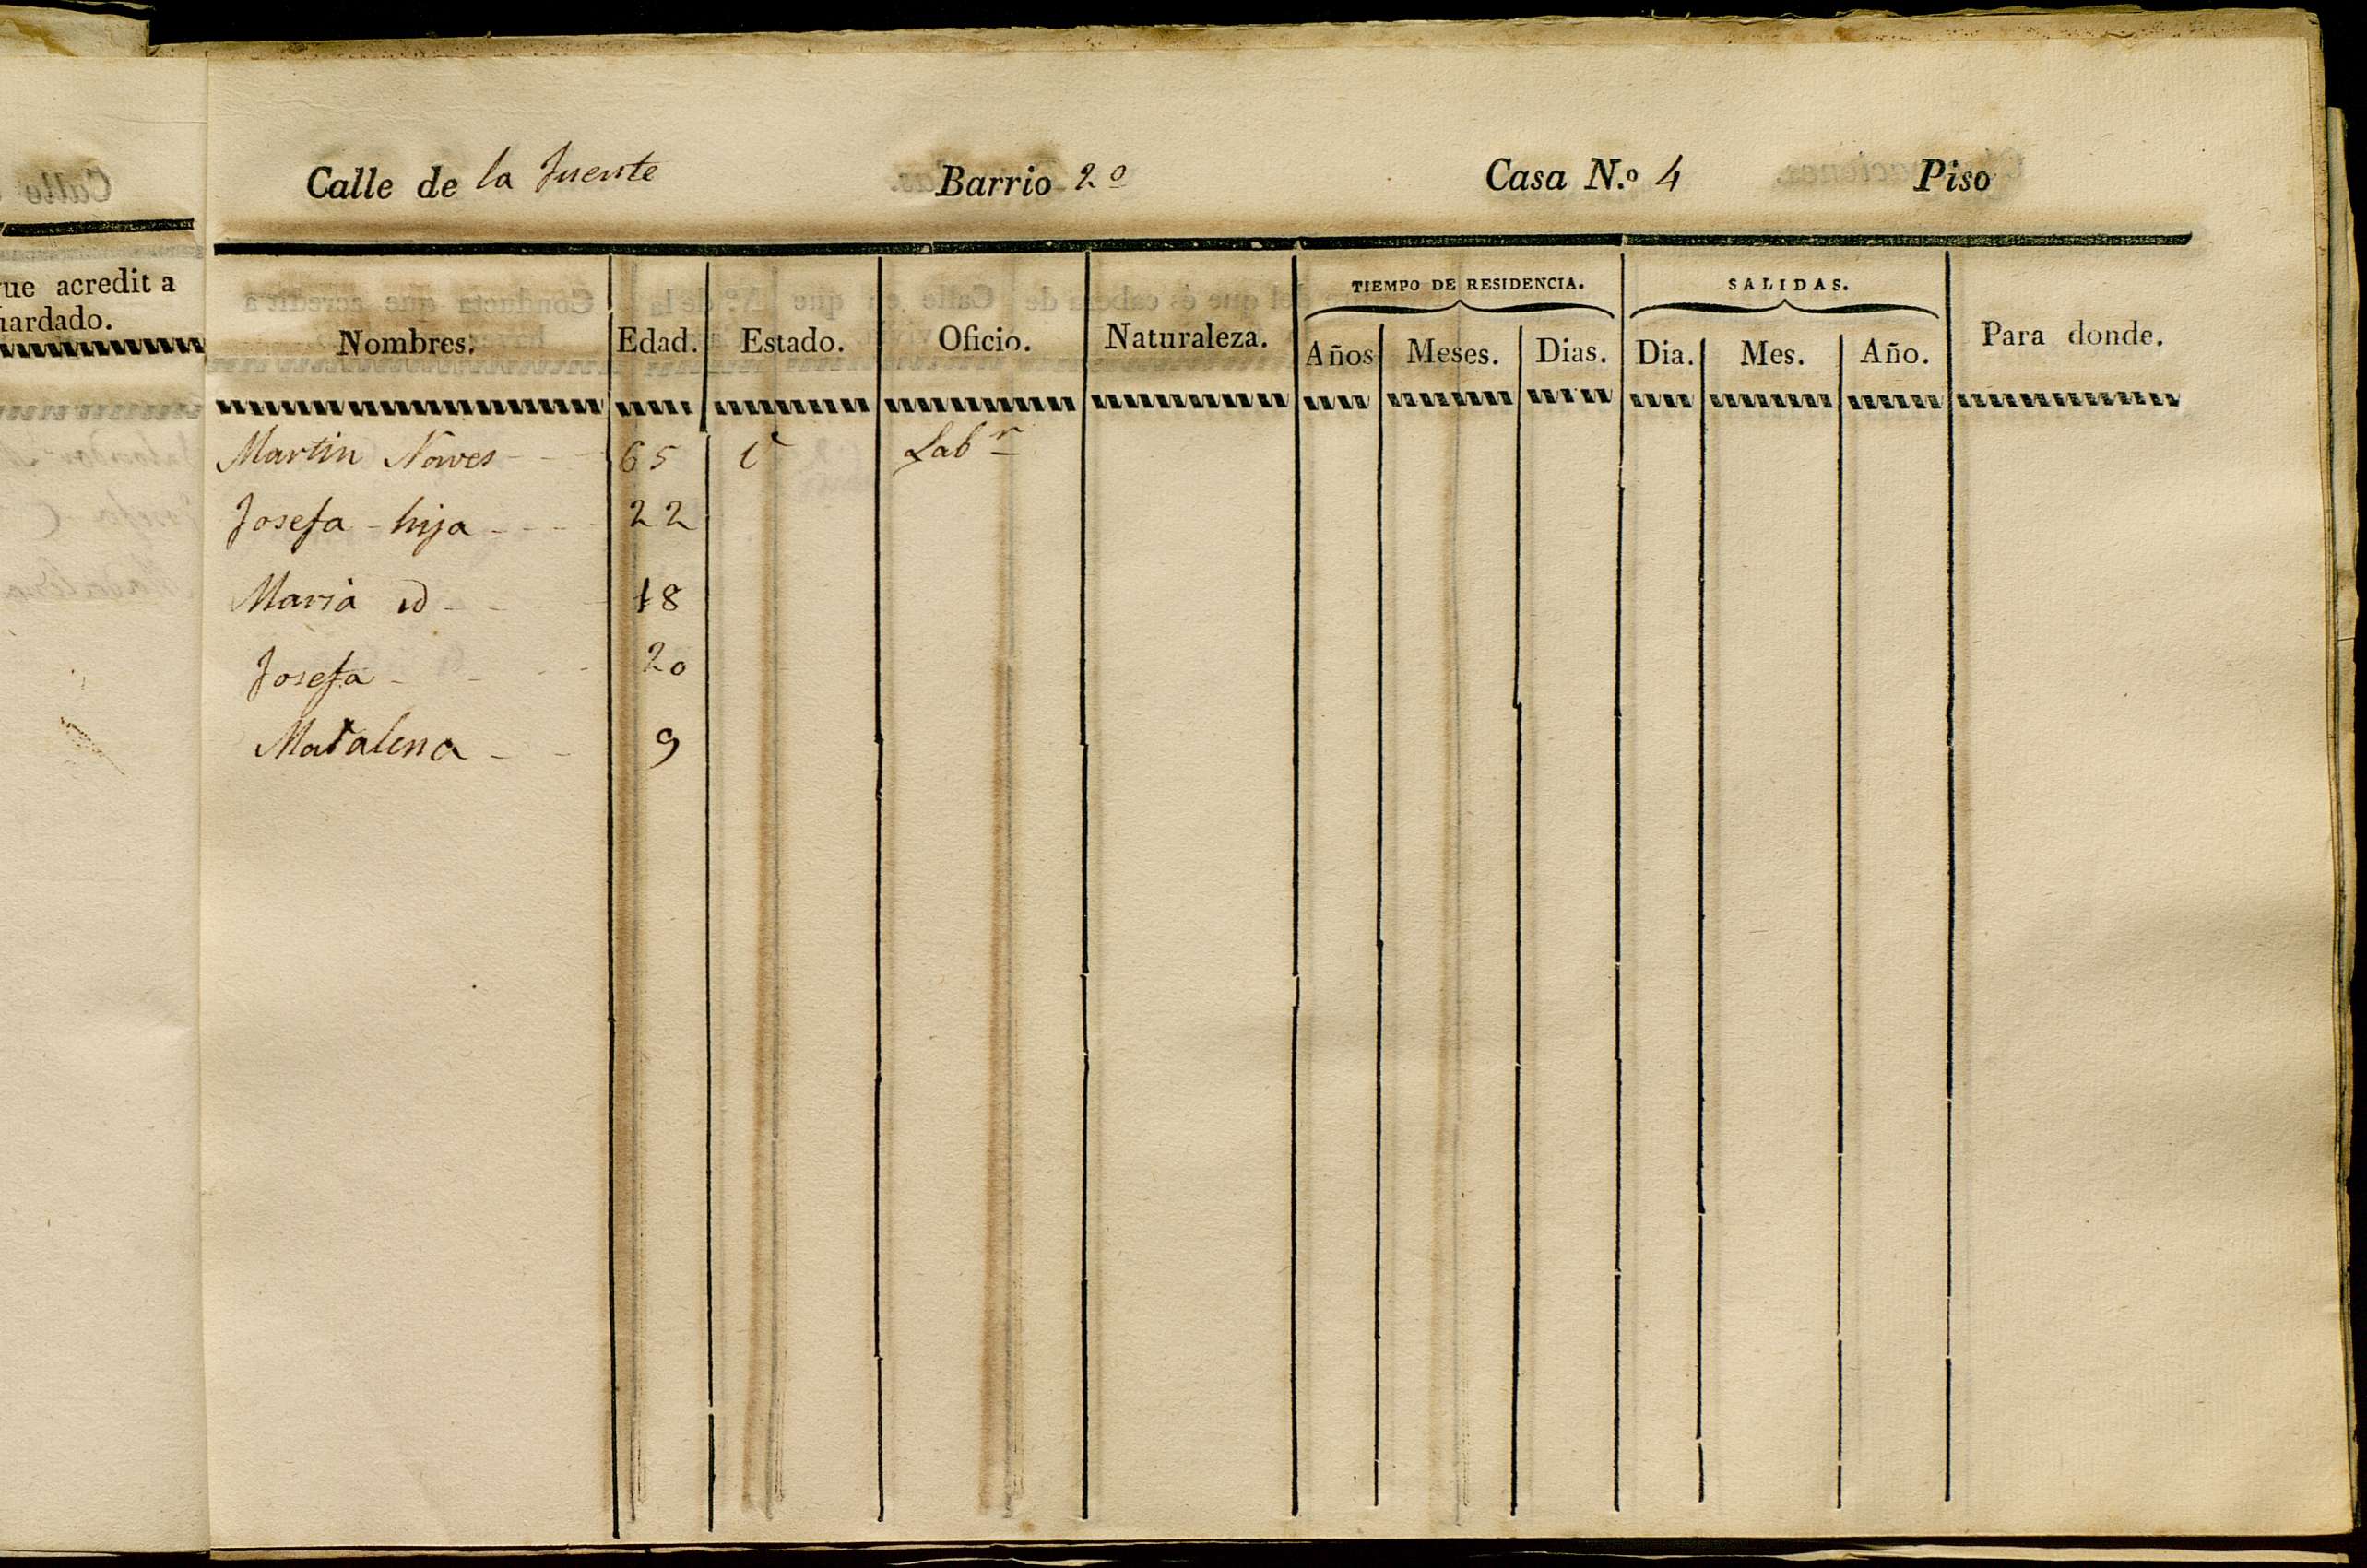 Calle de la fuente Barrio 2º Casa N.º 4 Piso
ue acredit a
uardado.
TIEMPO DE RESIDENCIA. SALIDAS.
Nombres. Edad. Estado. Oficio. Naturaleza. Años Meses. Dias. Dia. Mes. Año. Para donde.
Martin 65 Labr
Josefa hija 22
Maria id 18
Josefa 20
Madalena 9